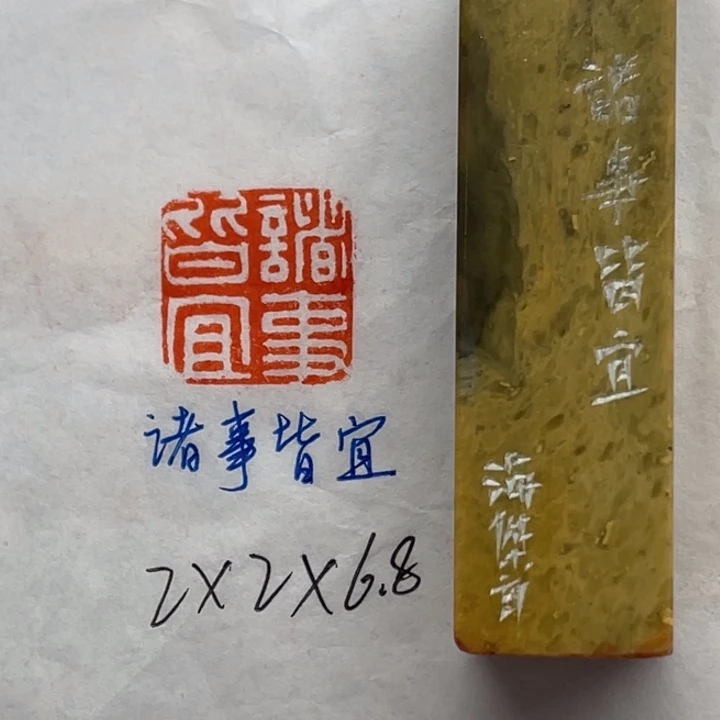 諸事
皆宜
诸事皆宜
2X2X6.8
諸事皆宜